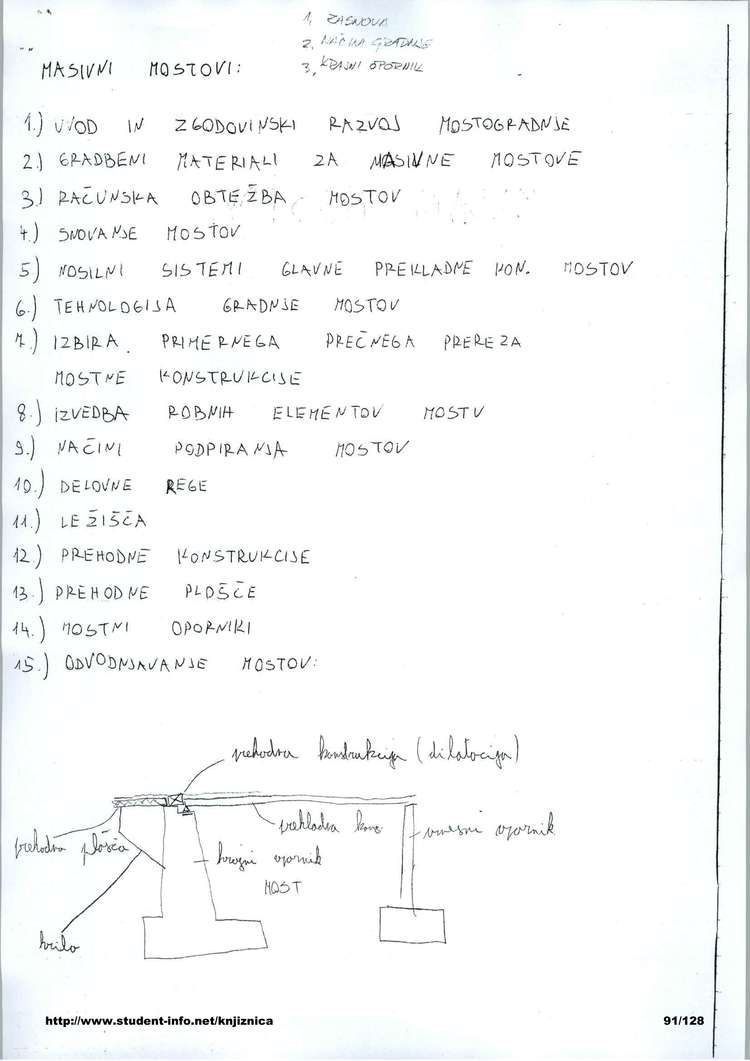 1, ZASNOVA
2, NAČIN GRADNJE
3, KRAJNI OPORNIK
MASIVNI MOSTOVI:
1.) UVOD IN ZGODOVINSKI RAZVOJ MOSTOGRADNJE
2.) GRADBENI MATERIALI ZA MASIVNE MOSTOVE
3.) RAČUNSKA OBTEŽBA MOSTOV
4.) SNOVANJE MOSTOV
5) NOSILNI SISTEMI GLAVNE PREKLADNE KON. MOSTOV
6.) TEHNOLOGIJA GRADNJE MOSTOV
7.) IZBIRA PRIMERNEGA PREČNEGA PREREZA
MOSTNE KONSTRUKCIJE
8.) IZVEDBA ROBNIH ELEMENTOV MOSTU
9.) NAČINI PODPIRANJA MOSTOV
10.) DELOVNE REGE
11.) LEŽIŠČA
12.) PREHODNE KONSTRUKCIJE
13.) PREHODNE PLOŠČE
14.) MOSTNI OPORNIKI
15.) ODVODNJAVANJE MOSTOV:
prehodna konstrukcija (dilatacija)
prekladna kons.
vmesni opornik
prehodna plošča
krajni opornik
MOST
krilo
http://www.student-info.net/knjiznica
91/128